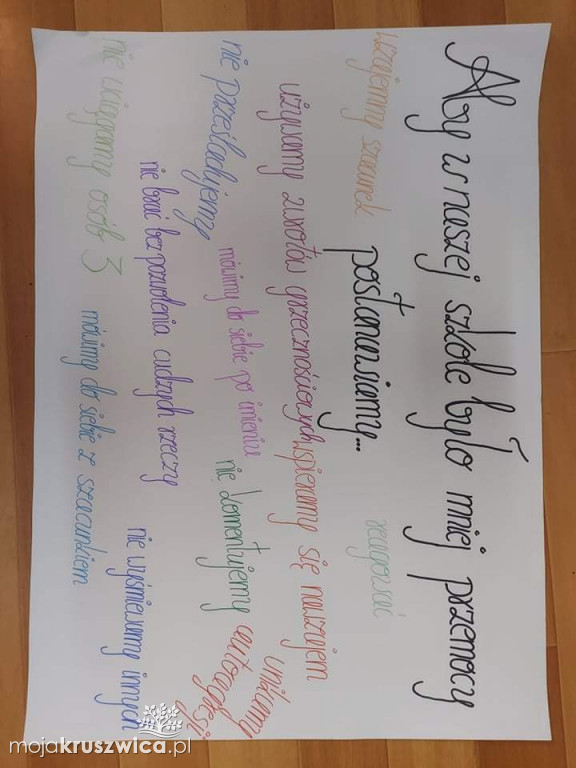 Aby w naszej szkole było mniej przemocy
postanawiamy...
wzajemny szacunek
reagować
używamy zwrotów grzecznościowych
wspieramy się nawzajem
nie prześladujemy
mówimy do siebie po imieniu
nie komentujemy
unikamy
autoagresji
nie brać bez pozwolenia cudzych rzeczy
nie wyśmiewamy innych
nie wciągamy osób 3
mówimy do siebie z szacunkiem
mojakruszwica.pl